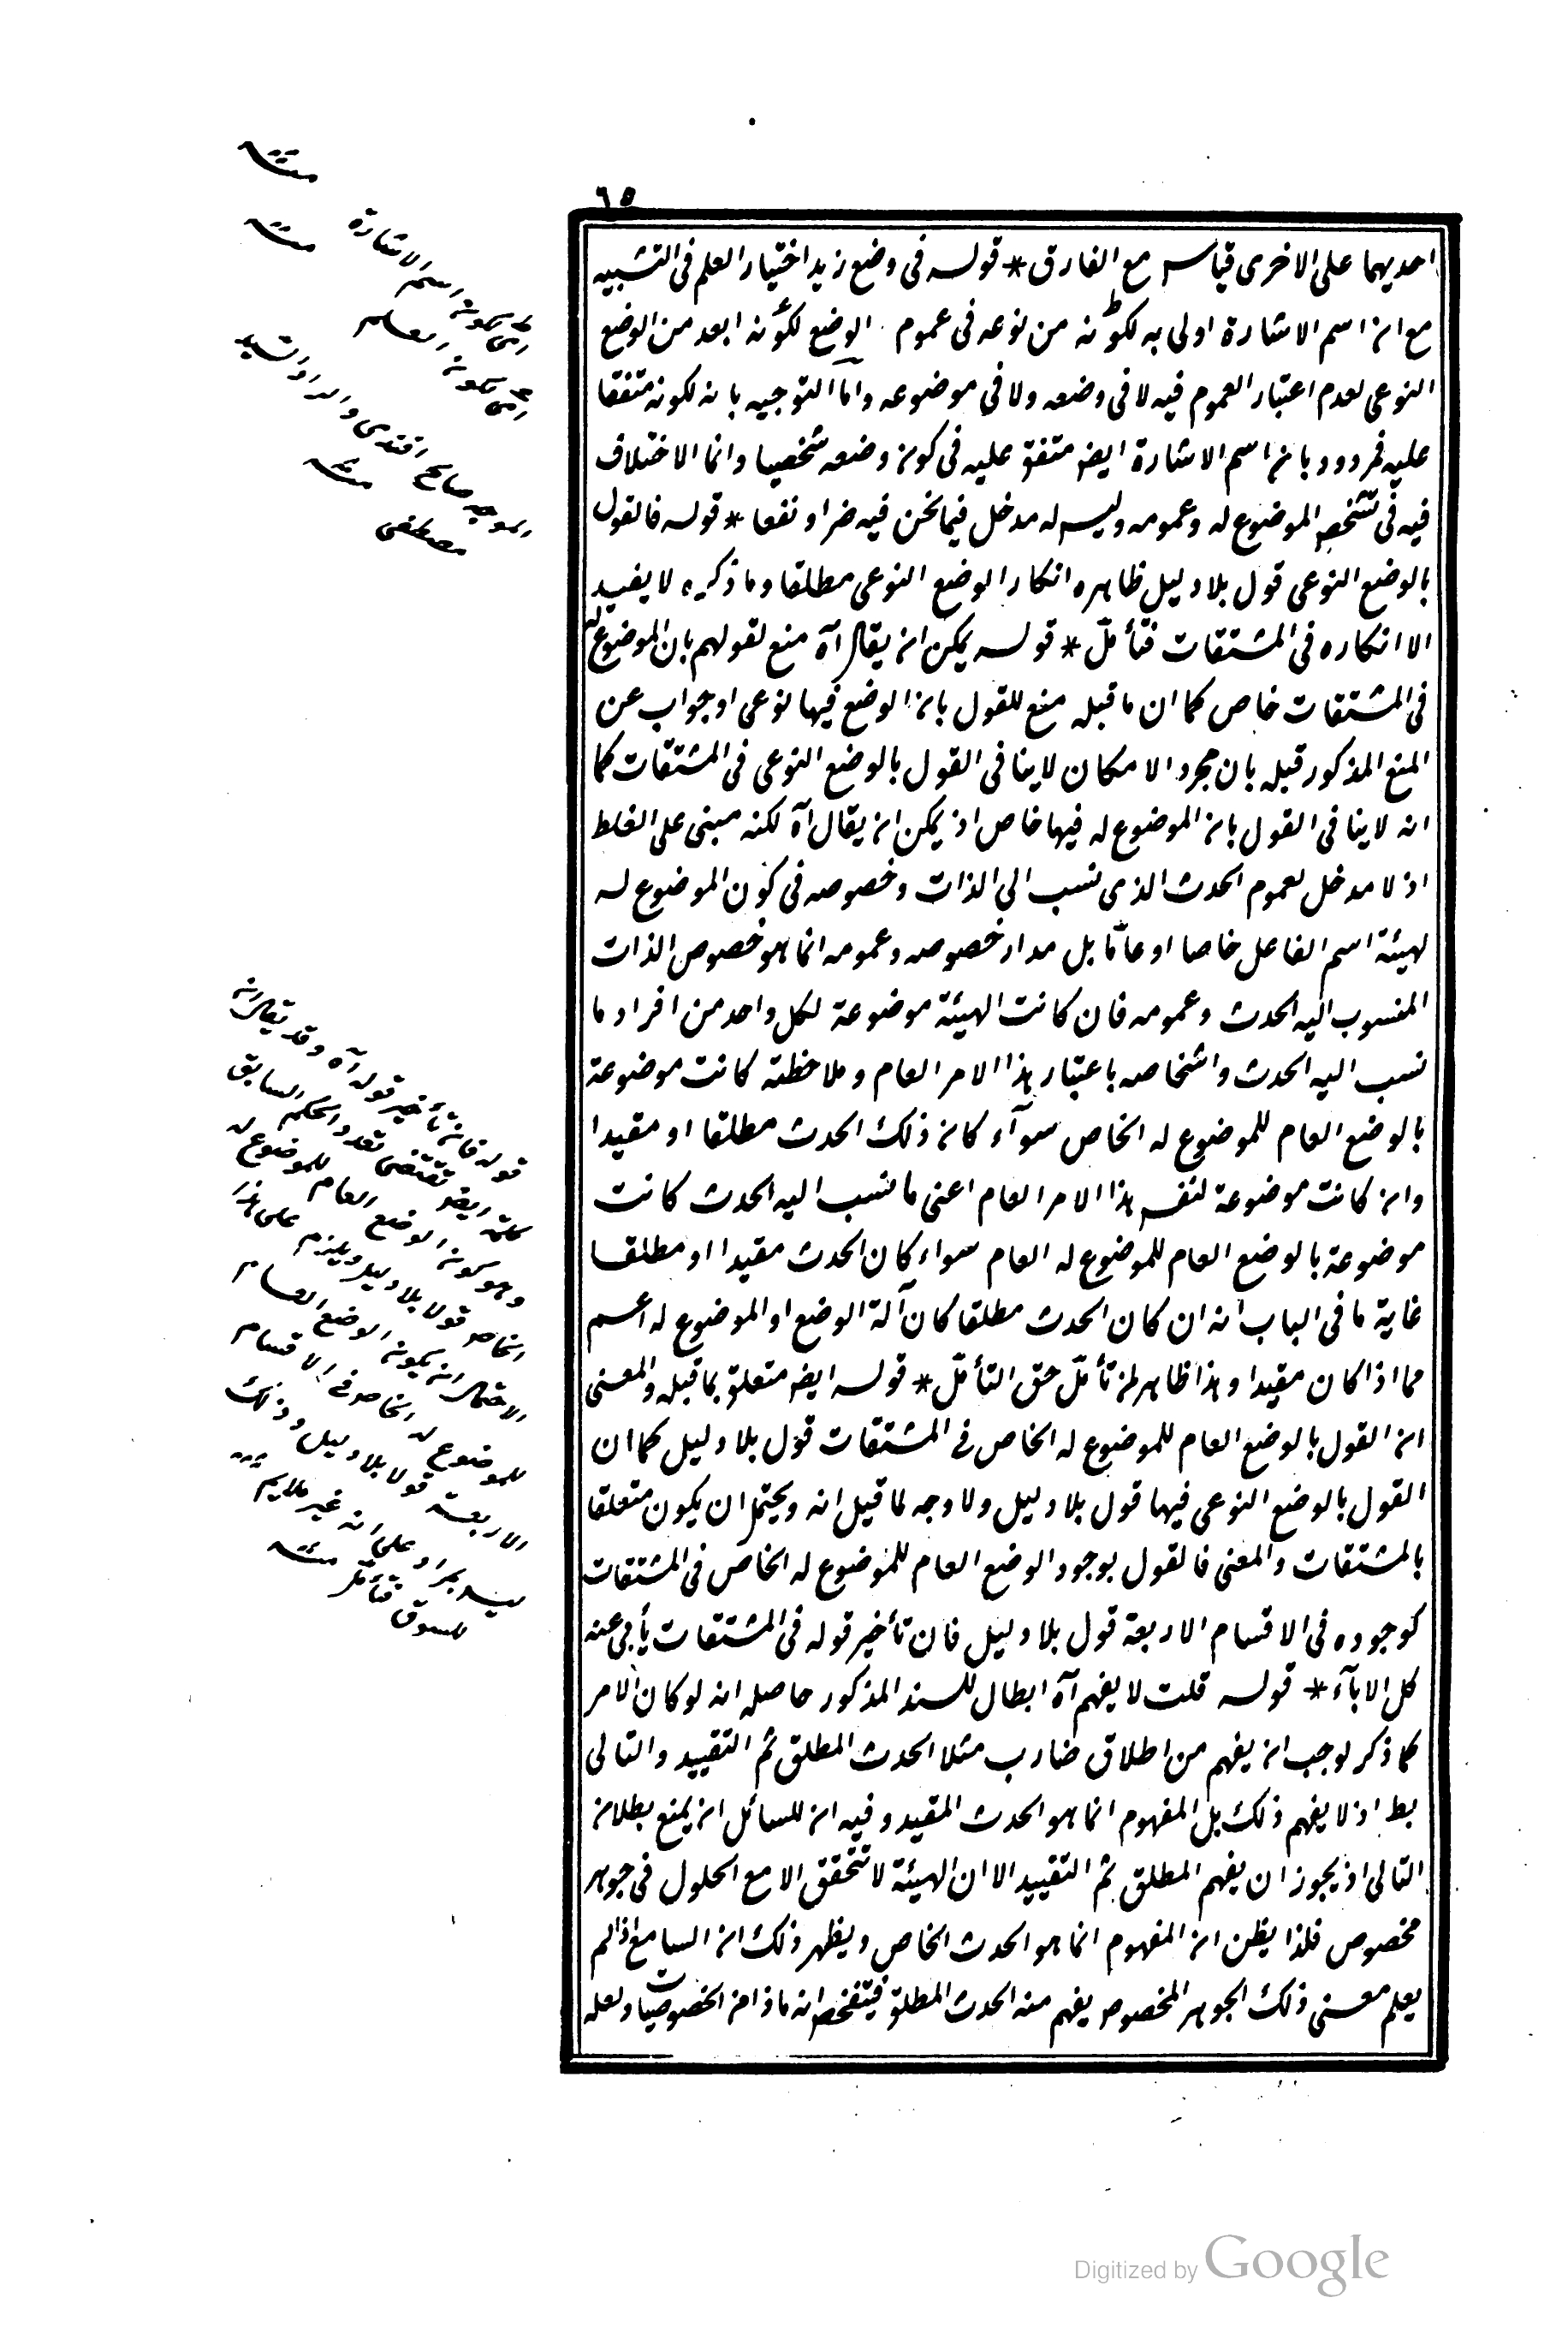 ٦٥
احديهما على الاخرى قياس مع الفارق * قوله فى وضع زيد اختيار العلم فى التشبيه
مع ان اسم الاشارة اولى به لكونه من نوعه فى عموم الوضع لكونه ابعد من الوضع
النوعى لعدم اعتبار العموم فيه لا فى وضعه ولا فى موضوعه واما التوجيه بانه لكونه متفقا
عليه فمردود بان اسم الاشارة ايضا متفق عليه فى كون وضعه شخصيا وانما الاختلاف
فيه فى تشخص الموضوع له وعمومه وليس له مدخل فيما نحن فيه ضرا ونفعا * قوله فالقول
بالوضع النوعى قول بلا دليل ظاهره انكار الوضع النوعى مطلقا وما ذكره لا يفيد
الا انكاره فى المشتقات فتأمل * قوله يمكن ان يقال آه منع لقولهم بان الموضوع له
فى المشتقات خاص كما ان ما قبله منع للقول بان الوضع فيها نوعى او جواب عن
المنع المذكور قبله بان مجرد الامكان لا ينافى القول بالوضع النوعى فى المشتقات كما
انه لا ينافى القول بان الموضوع له فيها خاص اذ يمكن ان يقال آه لكنه مبنى على الغلط
اذ لا مدخل لعموم الحدث الذى نسب الى الذات وخصوصه فى كون الموضوع له
لهيئة اسم الفاعل خاصا او عامّا بل مدار خصوصه وعمومه انما هو خصوص الذات
المنسوب اليه الحدث وعمومه فان كانت الهيئة موضوعة لكل واحد من افراد ما
نسب اليه الحدث واشخاصه باعتبار هذا الامر العام وملاحظته كانت موضوعة
بالوضع العام للموضوع له الخاص سوآء كان ذلك الحدث مطلقا او مقيدا
وان كانت موضوعة لنفس هذا الامر العام اعنى ما نسب اليه الحدث كانت
موضوعة بالوضع العام للموضوع له العام سواء كان الحدث مقيدا او مطلقا
غاية ما فى الباب انه ان كان الحدث مطلقا كان آلة الوضع او الموضوع له اعم
مما اذا كان مقيدا وهذا ظاهر لمن تأمّل حق التأمّل * قوله ايضا متعلق بما قبله والمعنى
ان القول بالوضع العام للموضوع له الخاص فى المشتقات قول بلا دليل كما ان
القول بالوضع النوعى فيها قول بلا دليل ولا وجه لما قيل انه ويحتمل ان يكون متعلقا
بالمشتقات والمعنى فالقول بوجود الوضع العام للموضوع له الخاص فى المشتقات
كوجوده فى الاقسام الاربعة قول بلا دليل فان تأخير قوله فى المشتقات يأبى عنه
كل الابآء * قوله قلت لا يفهم آه ابطال للسند المذكور حاصله انه لو كان الامر
كما ذكر لوجب ان يفهم من اطلاق ضارب مثلا الحدث المطلق ثم التقييد والتالى
بط اذ لا يفهم ذلك بل المفهوم انما هو الحدث المقيد وفيه ان للسائل ان يمنع بطلان
التالى اذ يجوز ان يفهم المطلق ثم التقييد الا ان الهيئة لا تتحقق الا مع الحلول فى جوهر
مخصوص فلذا يظن ان المفهوم انما هو الحدث الخاص ويظهر ذلك ان السامع اذا لم
يعلم معنى ذلك الجوهر المخصوص يفهم منه الحدث المطلق فيتفحص انه ماذا من الخصوصيات ولعله
اى كونه اسم الاشارة
منه
اى كونه العلم
منه
الموجه صالح افندى والداو
مصطفى
منه
قوله فان تأخير قوله آه وقد يقال انه
كلمة ايضا تقتضى تعدد الحكم السابق
وهو كونه الوضع العام للموضوع له
الخاص قولا بلا دليل ويلزم على هذا
الاحتمال ان يكون الوضع العام
للموضوع له الخاص فى الاقسام
الاربعة قولا بلا دليل وذلك
ليس بمراد على انه غير ملايم
للسوق فتأمل منه
Digitized by Google